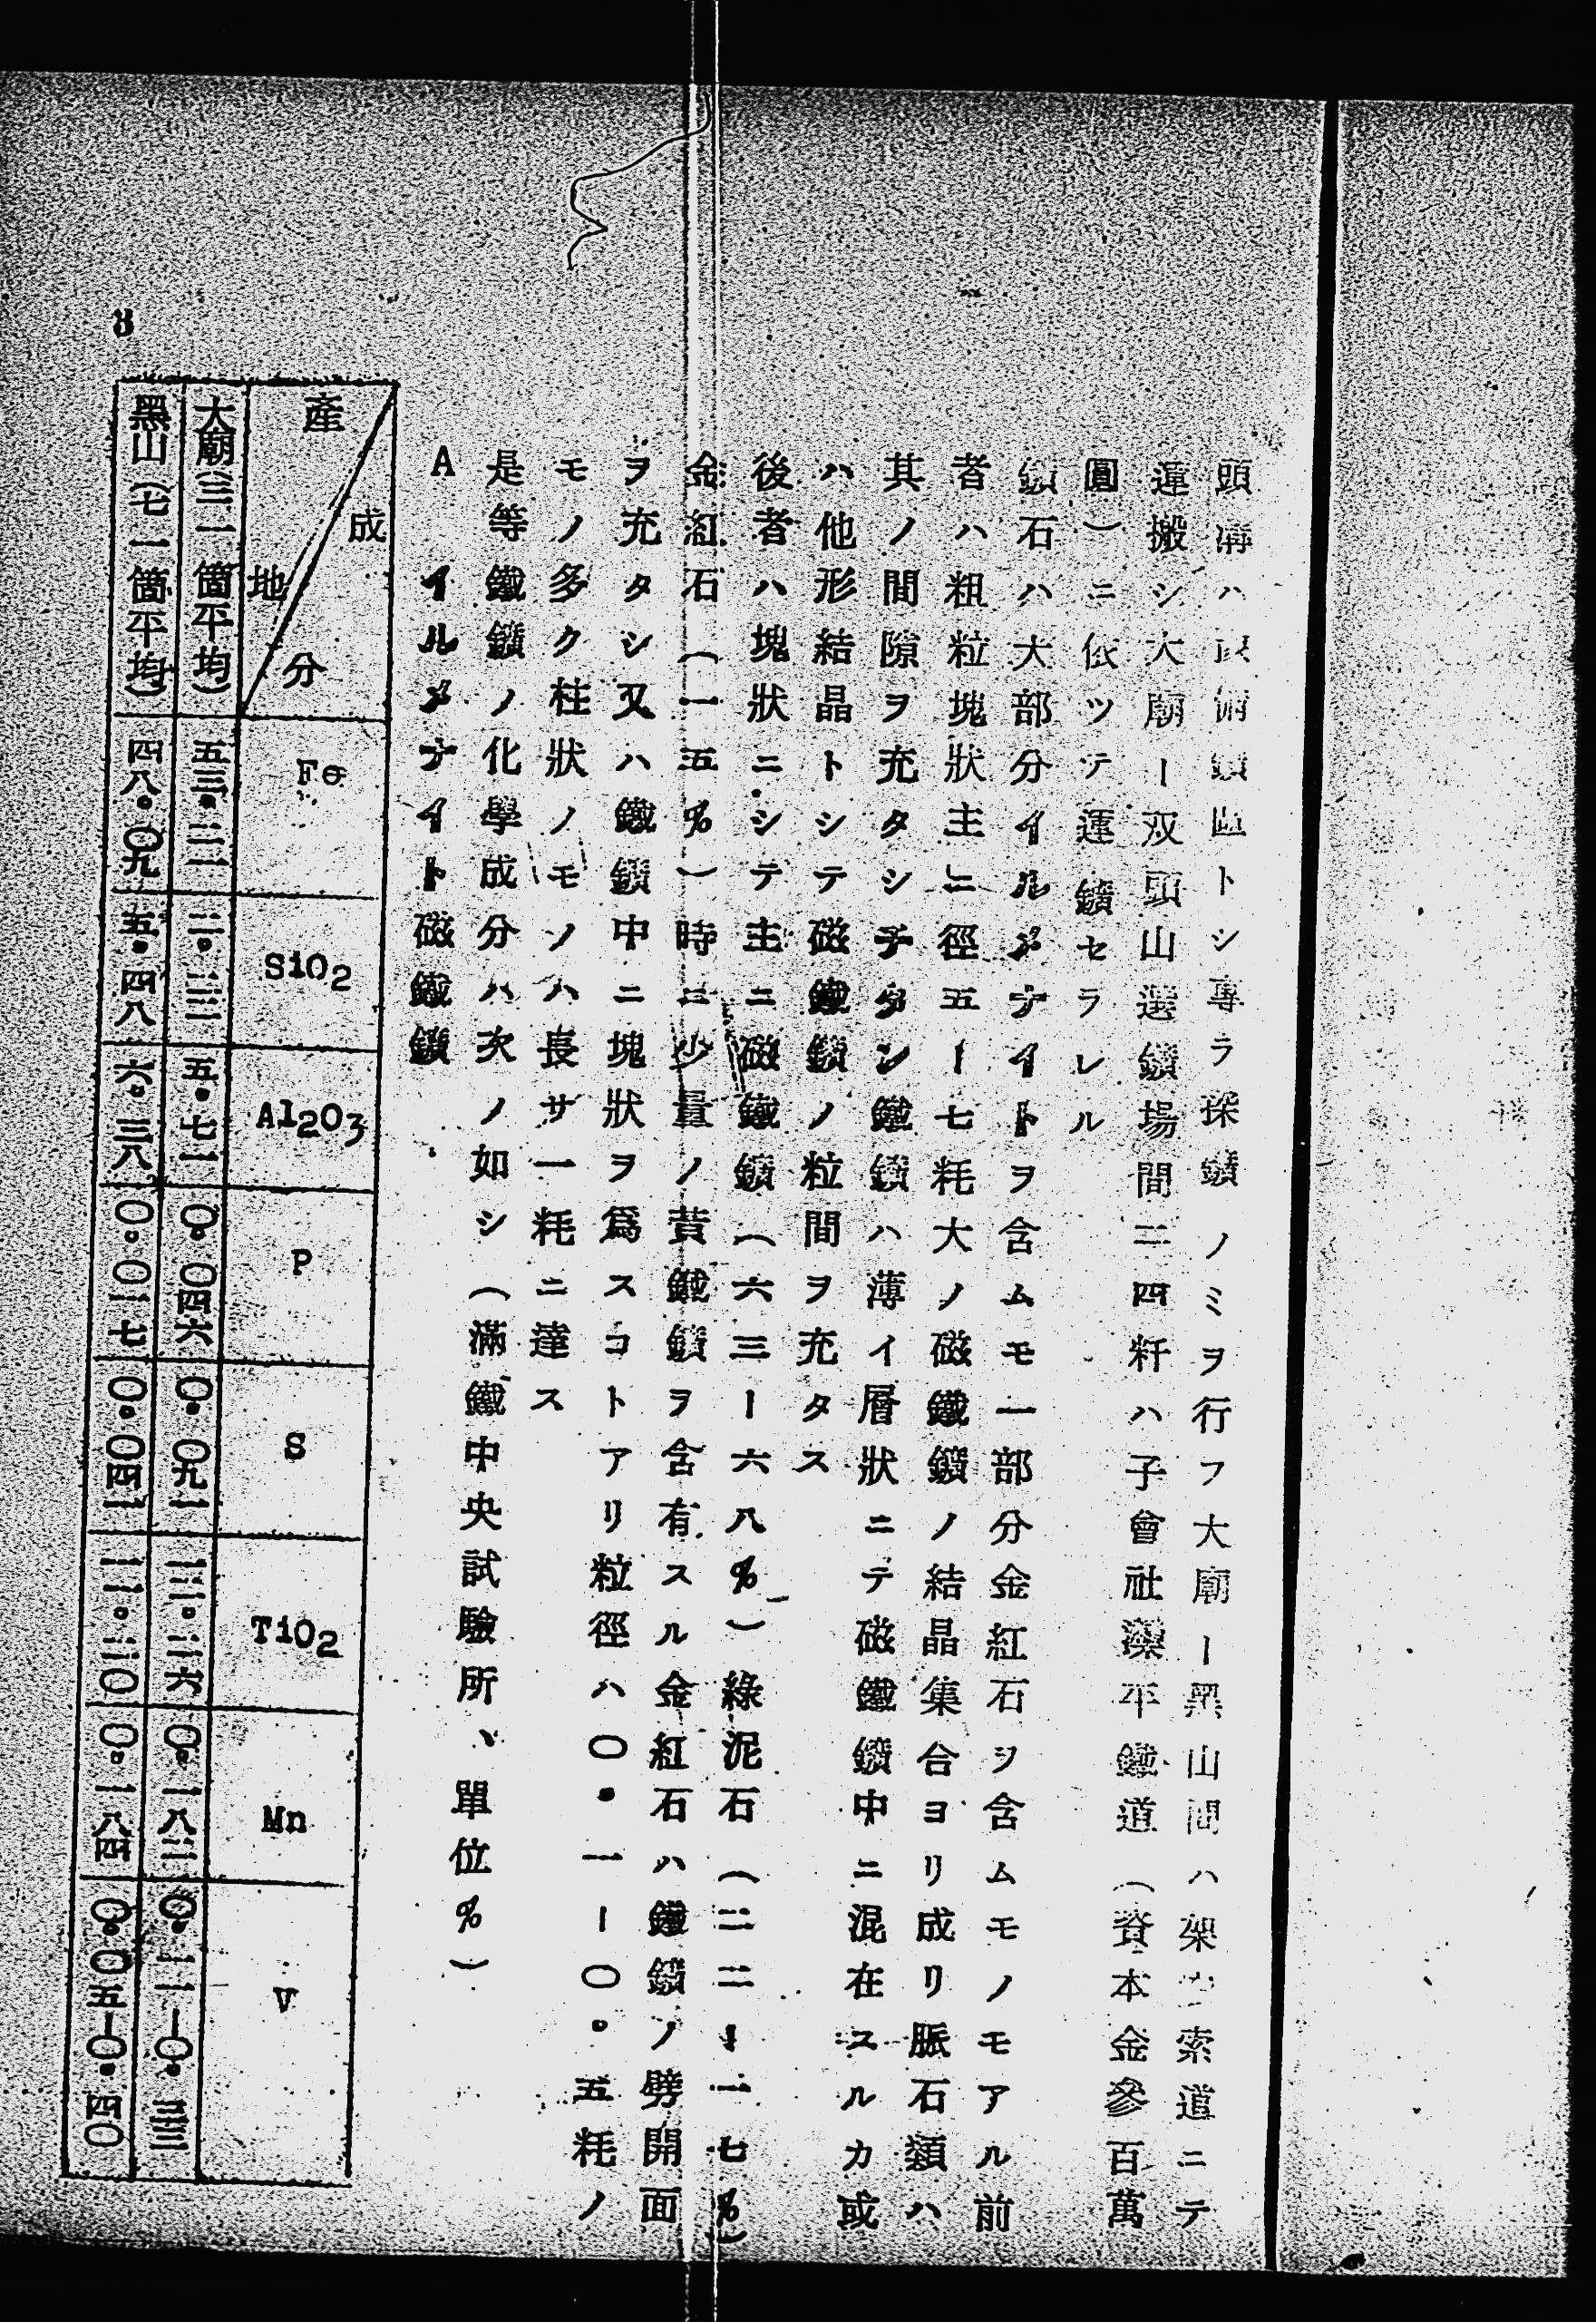 頭溝ハ 鑛區トシ專ラ探鑛ノミヲ行フ大廟ー黑山間ハ架空索道ニテ
運搬シ大廟ー双頭山選鑛場間二四粁ハ子會社灤平鐵道（資本金參百萬
圓）ニ依ツテ運鑛セラレル
鑛石ハ大部分イルメナイトヲ含ムモ一部分金紅石ヲ含ムモノモアル前
者ハ粗粒塊狀主ニ徑五ー七粍大ノ磁鐵鑛ノ結晶集合ヨリ成リ脈石類ハ
其ノ間隙ヲ充タシチタン鐵鑛ハ薄イ層狀ニテ磁鐵鑛中ニ混在スルカ或
ハ他形結晶トシテ磁鐵鑛ノ粒間ヲ充タス
後者ハ塊狀ニシテ主ニ磁鐵鑛（六三ー六八％）綠泥石（二二ー一七％）
金紅石（一五％）時ニ少量ノ黃鐵鑛ヲ含有スル金紅石ハ鐵鑛ノ劈開面
ヲ充タシ又ハ鐵鑛中ニ塊狀ヲ爲スコトアリ粒徑ハ〇・一ー〇・五粍ノ
モノ多ク柱狀ノモノハ長サ一粍ニ達ス
是等鐵鑛ノ化學成分ハ次ノ如シ（滿鐵中央試驗所、單位％）
A イルメナイト磁鐵鑛
產地 成分 Fe SiO2 Al2O3 P S TiO2 Mn V
大廟（三一箇平均） 五三・二一 二・三三 五・七一 〇・〇四六 〇・〇九一 一三・二六 〇・一八二 〇・二一ー〇・三三
黑山（七一箇平均） 四八・〇九 五・四八 六・三八 〇・〇一七 〇・〇四一 一一・三〇 〇・一八四 〇・〇五ー〇・四〇
8